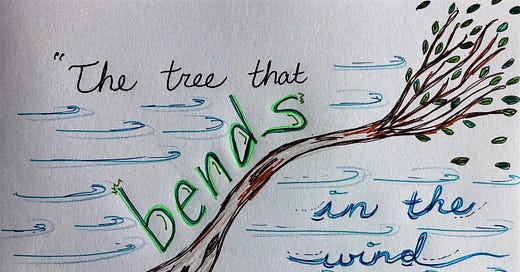 "The tree that
bends
in the
wind